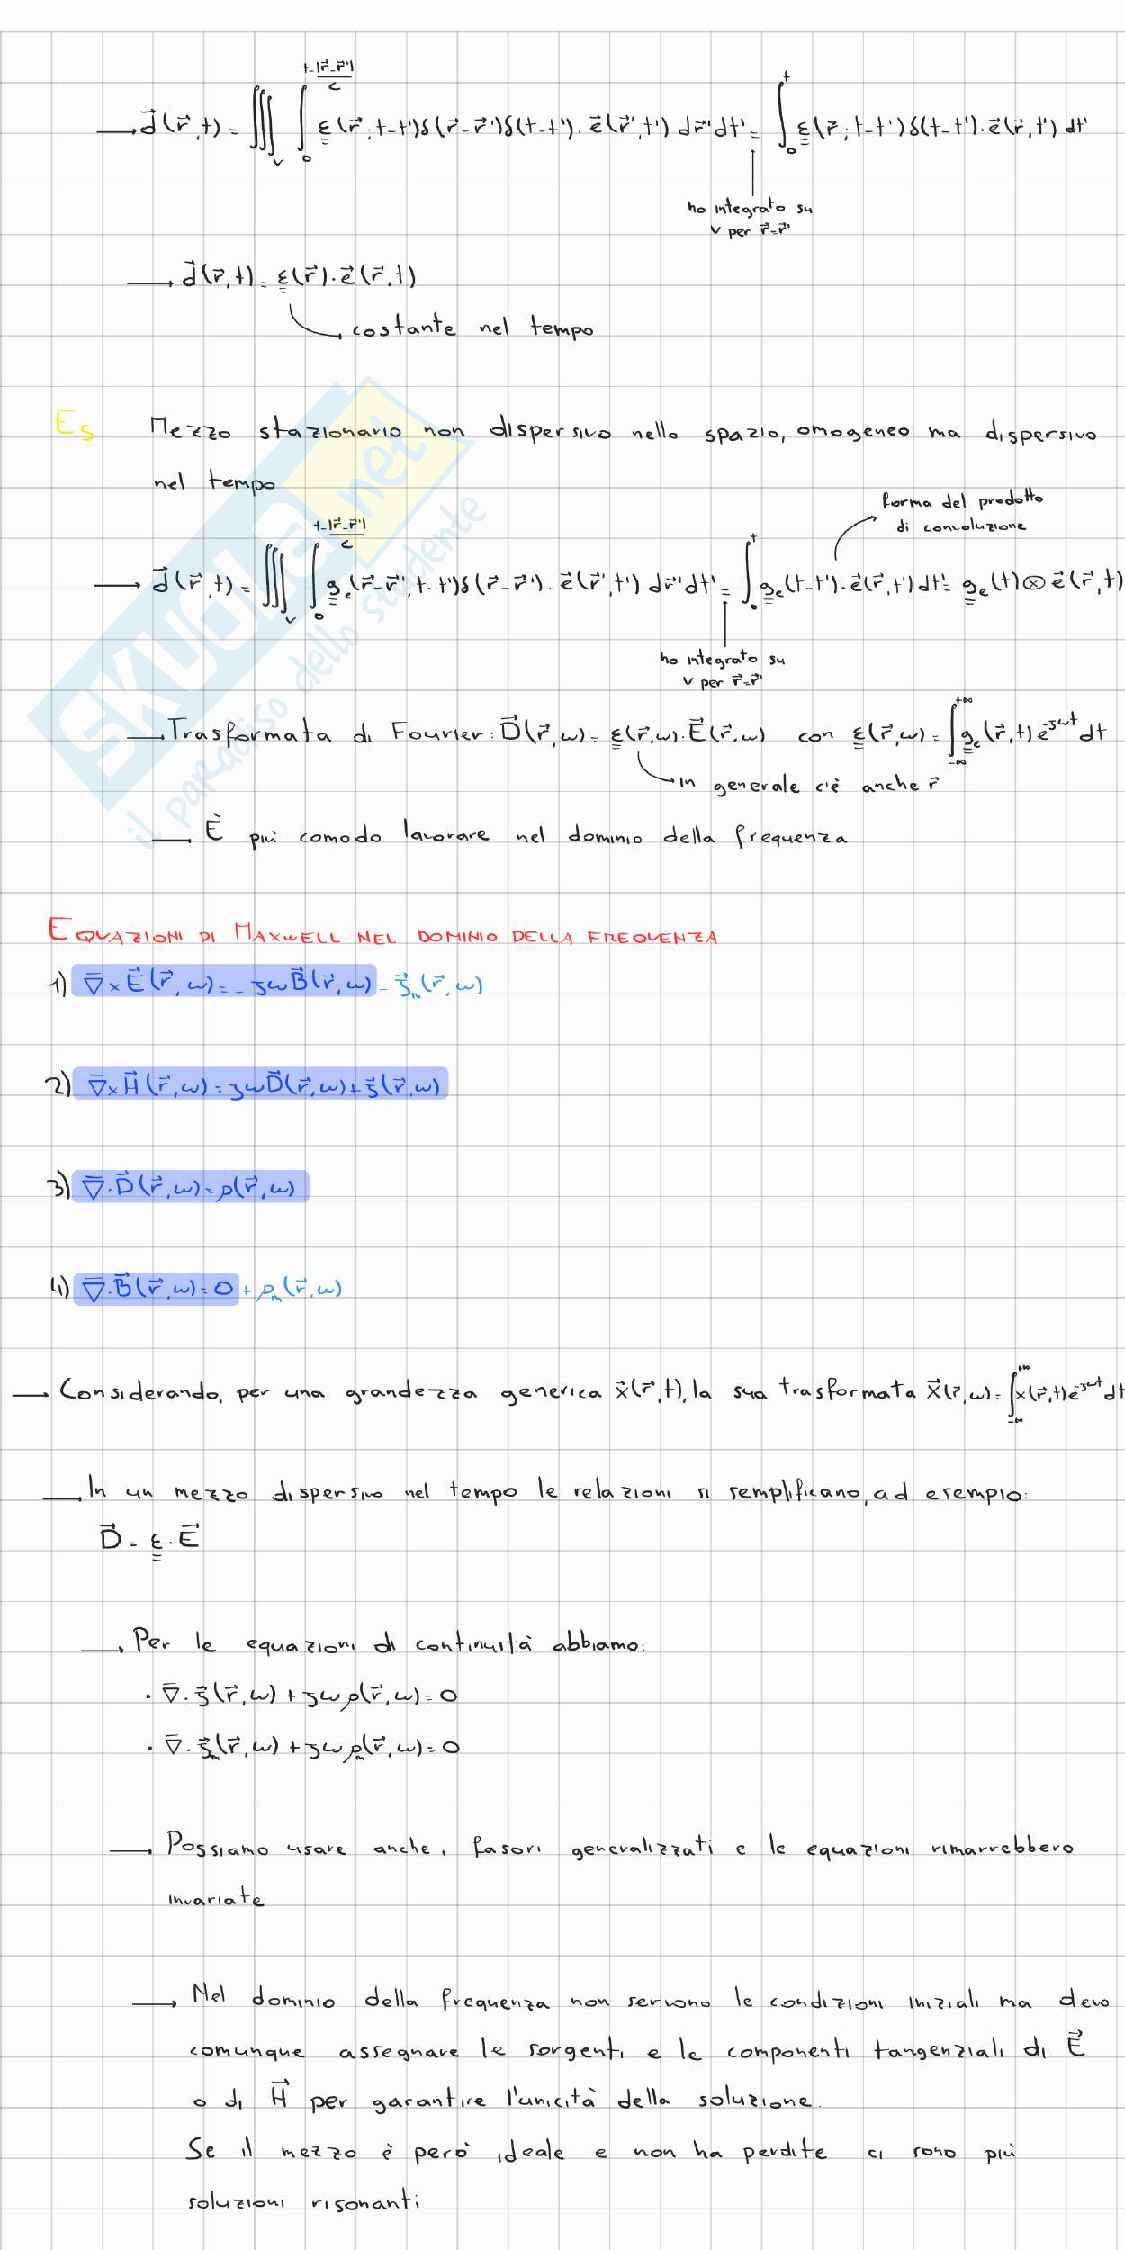 → d⃗(r⃗,t) = ∭_V ∫_0^{t-|r⃗-r⃗'|/c} ε(r⃗, t-t')δ(r⃗-r⃗')δ(t-t')·e⃗(r⃗',t') dr⃗'dt' = ∫_0^t ε(r⃗, t-t')δ(t-t')·e⃗(r⃗,t') dt'
ho integrato su
V per r⃗=r⃗'
→ d⃗(r⃗,t) = ε(r⃗)·e⃗(r⃗,t)
→ costante nel tempo
Es Mezzo stazionario non dispersivo nello spazio, omogeneo ma dispersivo
nel tempo
forma del prodotto
di convoluzione
→ d⃗(r⃗,t) = ∭_V ∫_0^{t-|r⃗-r⃗'|/c} g_e(r⃗-r⃗', t-t')δ(r⃗-r⃗')·e⃗(r⃗',t') dr⃗'dt' = ∫_0^t g_e(t-t')·e⃗(r⃗,t') dt' = g_e(t)⊗e⃗(r⃗,t)
ho integrato su
V per r⃗=r⃗'
→ Trasformata di Fourier: D⃗(r⃗,ω) = ε(r⃗,ω)·E⃗(r⃗,ω) con ε(r⃗,ω) = ∫_{-∞}^{+∞} g_e(r⃗,t) e^{-jωt} dt
→ in generale c'è anche r⃗
→ È più comodo lavorare nel dominio della frequenza
SKUOLA.net
il paradiso dello studente
EQUAZIONI DI MAXWELL NEL DOMINIO DELLA FREQUENZA
1) ∇×E⃗(r⃗,ω) = -jωB⃗(r⃗,ω) - J⃗_m(r⃗,ω)
2) ∇×H⃗(r⃗,ω) = jωD⃗(r⃗,ω) + J⃗(r⃗,ω)
3) ∇·D⃗(r⃗,ω) = ρ(r⃗,ω)
4) ∇·B⃗(r⃗,ω) = 0 + ρ_m(r⃗,ω)
→ Considerando, per una grandezza generica x⃗(r⃗,t), la sua trasformata X⃗(r,ω) = ∫_{-∞}^{+∞} x(r⃗,t) e^{-jωt} dt
→ In un mezzo dispersivo nel tempo le relazioni si semplificano, ad esempio:
D⃗ = ε·E⃗
→ Per le equazioni di continuità abbiamo:
· ∇·J⃗(r⃗,ω) + jωρ(r⃗,ω) = 0
· ∇·J⃗_m(r⃗,ω) + jωρ_m(r⃗,ω) = 0
→ Possiamo usare anche i fasori generalizzati e le equazioni rimarrebbero
invariate
→ Nel dominio della frequenza non servono le condizioni iniziali ma devo
comunque assegnare le sorgenti e le componenti tangenziali di E⃗
o di H⃗ per garantire l'unicità della soluzione.
Se il mezzo è però ideale e non ha perdite ci sono più
soluzioni risonanti